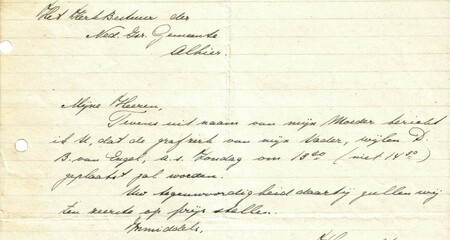 Het Kerk Bestuur der
Ned. Isr. Gemeente
Alhier.
Mijne Heeren,
Tevens uit naam van mijn Moeder bericht
ik U, dat de grafzerk van mijn Vader, wijlen D.
B. van Engel, a.s. Zondag om 13⁰⁰ (niet 14³⁰)
geplaatst zal worden.
Uw tegenwoordigheid daarbij zullen wij
ten zeerste op prijs stellen.
Inmiddels,